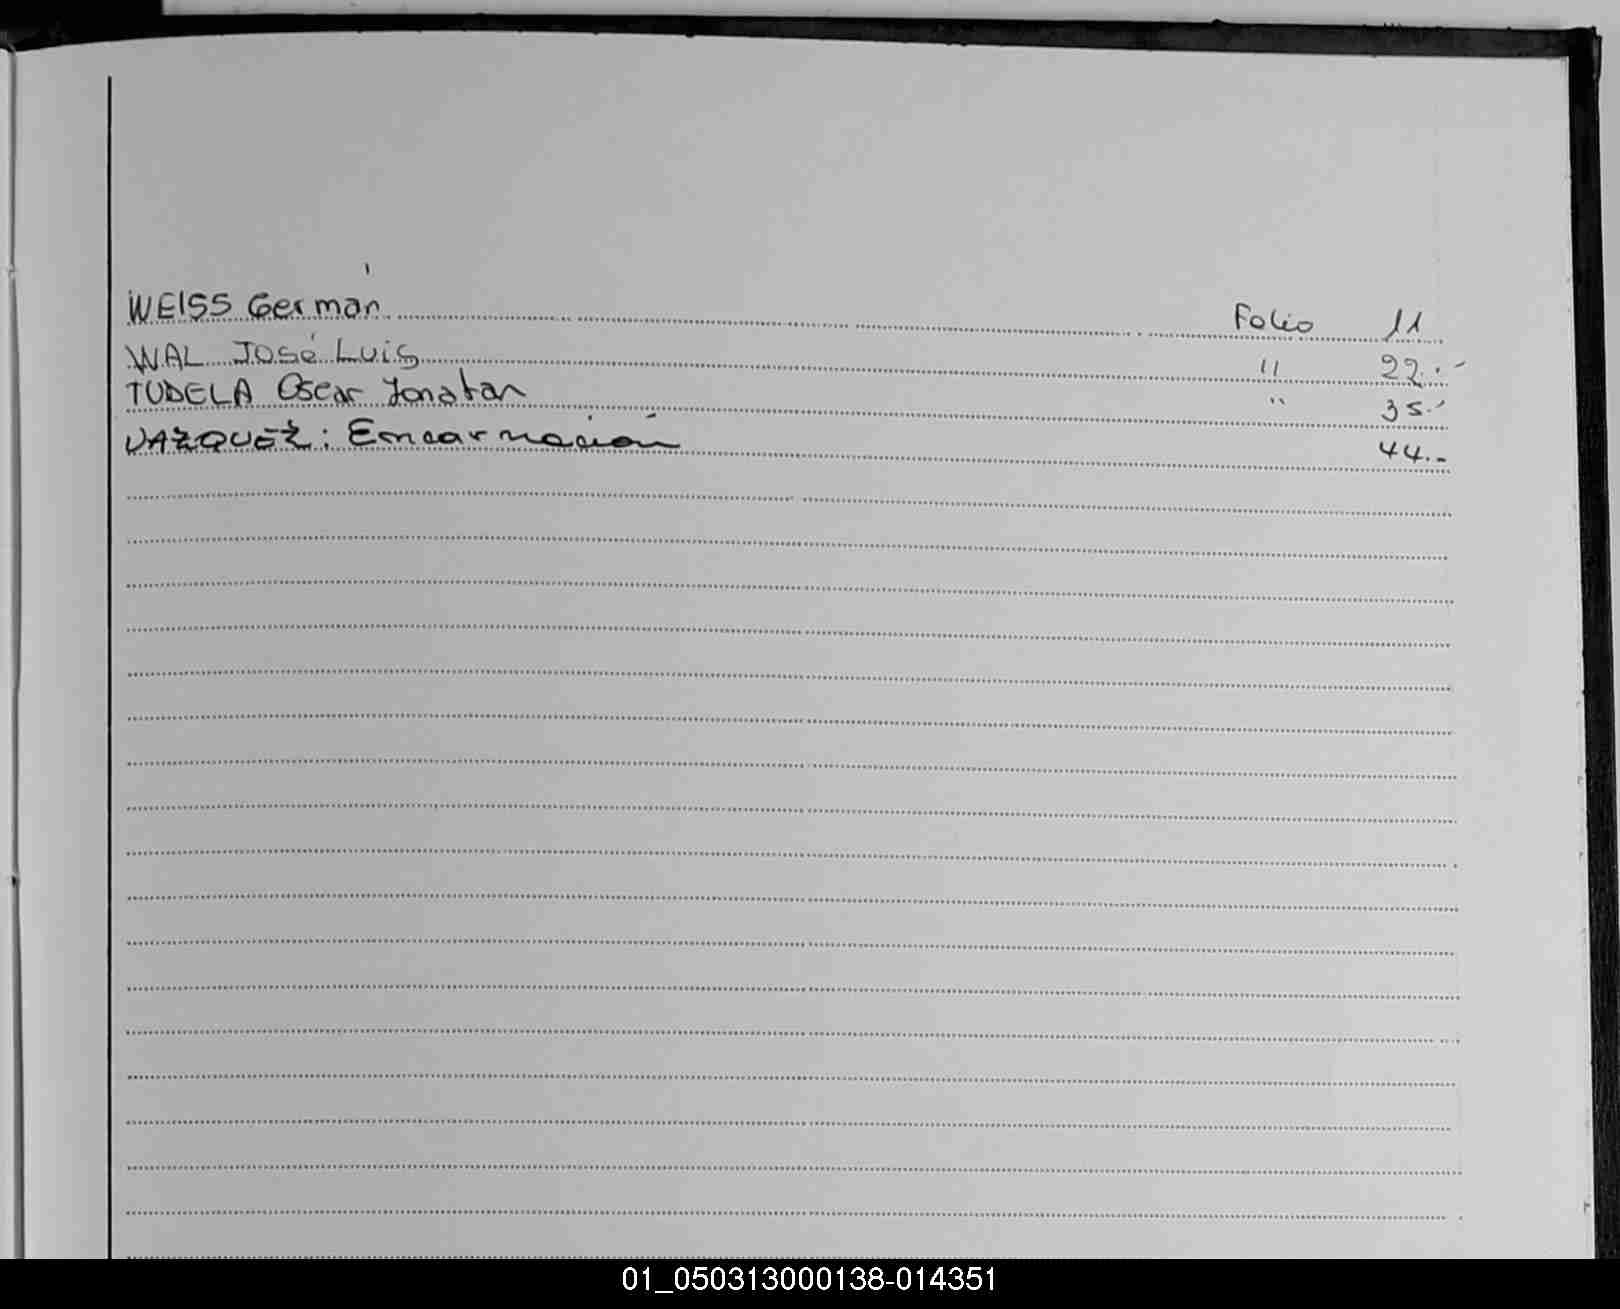 WEISS Germán Folio 11
WAL José Luis " 22.-
TUDELA Oscar Jonatan " 35.-
VAZQUEZ: Encarnación 44.-
01_050313000138-014351